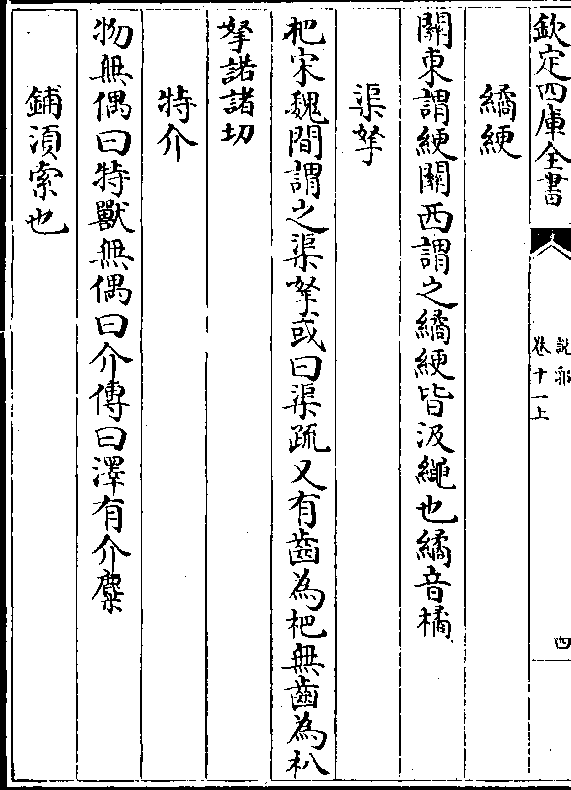 欽定四庫全書
說郛
卷十一上
四
繘綆
關東謂綆關西謂之繘綆皆汲繩也繘音橘
渠挐
杷宋魏間謂之渠挐或曰渠疏又有齒為杷無齒為朳
挐諾諸切
特介
物無偶曰特獸無偶曰介傳曰澤有介麋
鋪湏索也